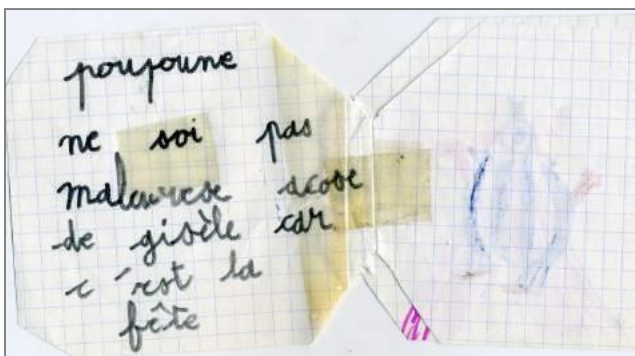 poupoune
ne soi pas
maleurese acose
de gisèle car
c'est la
fête